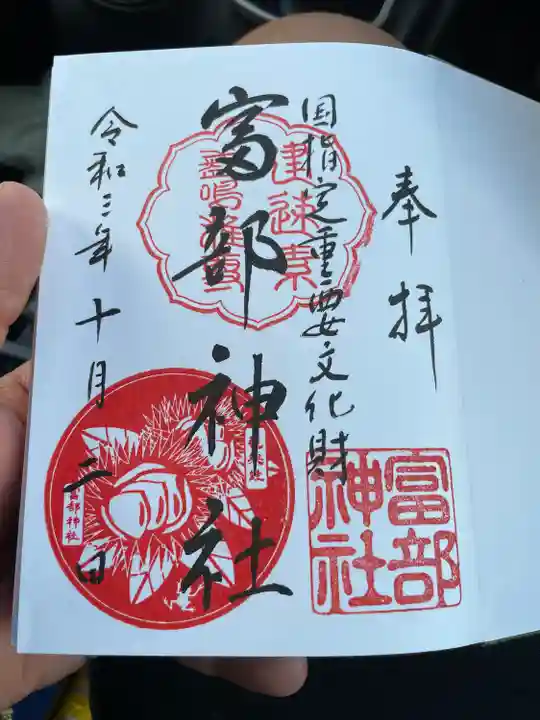 奉拝
国指定重要文化財
富部神社
令和三年十月二日
富部神社
富部神社